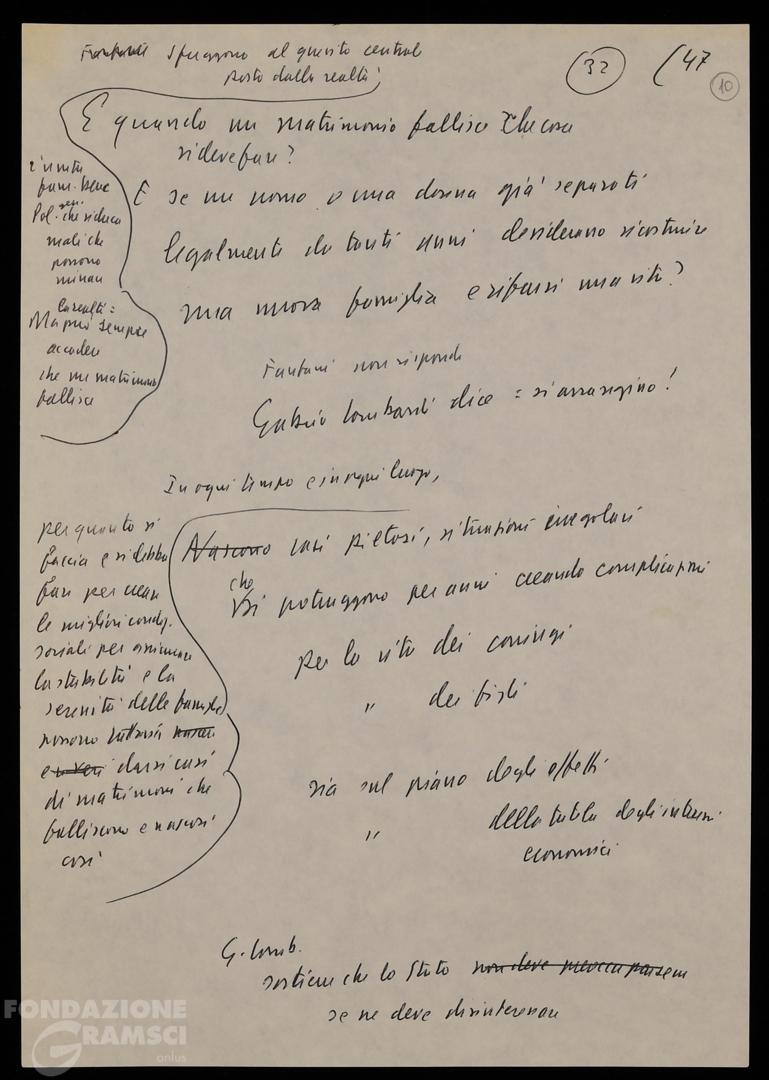 Fanfani sfuggono al quesito central
posto dalla realtà!
32
47
10
E quando un matrimonio fallisce che cosa
si deve fare?
E se un uomo o una donna già separati
legalmente da tanti anni desiderano ricostruire
una nuova famiglia e rifarsi una vita?
L'unità
fam. bene
Pol. che riduca
mali che
possono
minar
La realtà =
Ma può sempre
accadere
che un matrimonio
fallisca
Fanfani non risponde
Gabrio Lombardi dice = si arrangino!
In ogni tempo e in ogni luogo,
per quanto si
faccia e si debba
fare per creare
le migliori condiz.
sociali per assicurare
la stabilità e la
serenità delle famiglie
possono tuttavia
e darsi casi
di matrimoni che
falliscono e nascosi
così
Nascono casi pietosi, situazioni irregolari
che
si protraggono per anni creando complicazioni
per la vita dei coniugi
" dei figli
sia sul piano degli affetti
" della tutela degli interessi
economici
G. Lomb.
sostiene che lo Stato non deve preoccuparsene
se ne deve disinteressare
FONDAZIONE
GRAMSCI
onlus